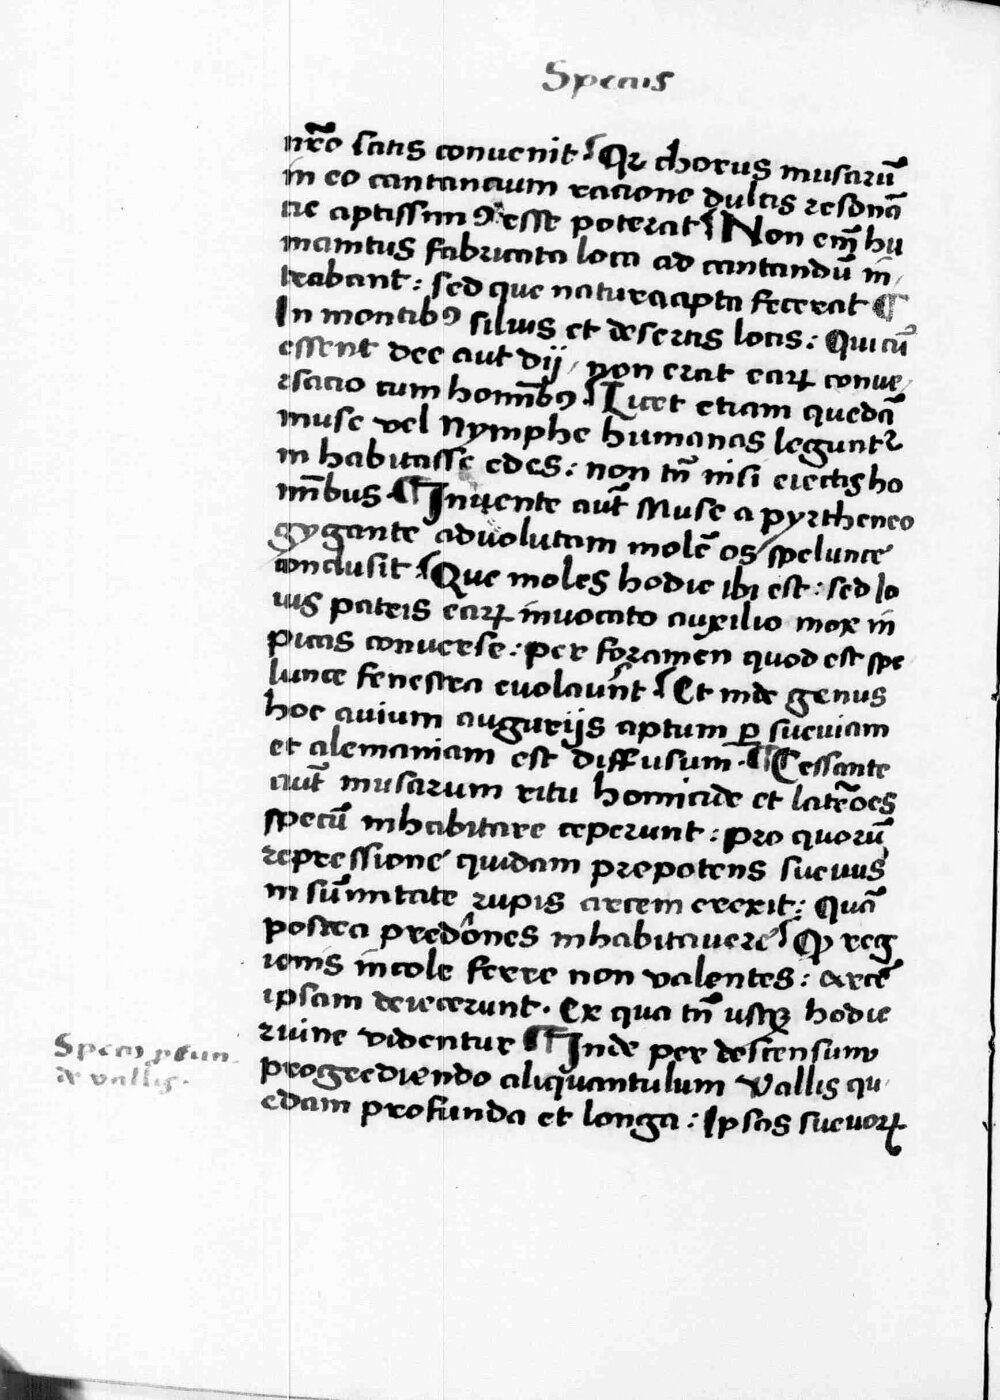 Specus
nr̄o satis convenit Qꝛ chorus musarū
in eo cantancium racione dulcis resonā
cie aptissimꝰ esse poterat Non em̄ hu
manitus fabricata loca ad cantandū in̄
trabant : sed que natura apta fecerat ¶
In montibꝰ siluis et desertis locis : Qui cū
essent dee aut dij / non erat earꝝ conue
rsacio cum hom̄bꝰ . Licet etiam quedā
muse vel Nymphe humanas leguntᷣ
in habitasse edes : non tn̄ nisi eiectis ho
mībus . ¶ Invente aut̄ Muse a pyrtheneo
gygante advolutam molē os spelunce
conclusit Que moles hodie ibi est : sed Io
uis patris earꝝ invocato auxilio mox in
picas converse : per foramen quod est spe
lunce fenestra euolaūnt Et inde genus
hoc avium augurijs aptum ꝑ sueuiam
et alemaniam est diffusum . ¶ Cessante
aut̄ musarum ritu homicide et latrōes
specū inhabitare ceperunt : Pro quorū
repressione quidam prepotens sueuus
in sūmitate rupis arcem erexit : Quā
postea predones inhabitauere Qꝫ reg
ionis incole ferre non valentes : arcē
ipsam deiecerunt . Ex qua tn̄ usqꝫ hodie
ruine videntur ¶ Inde per descensum
progrediendo aliquantulum Vallis qu
edam profunda et longa : Ipsas sueuorꝝ
Specus profun
de vallis .